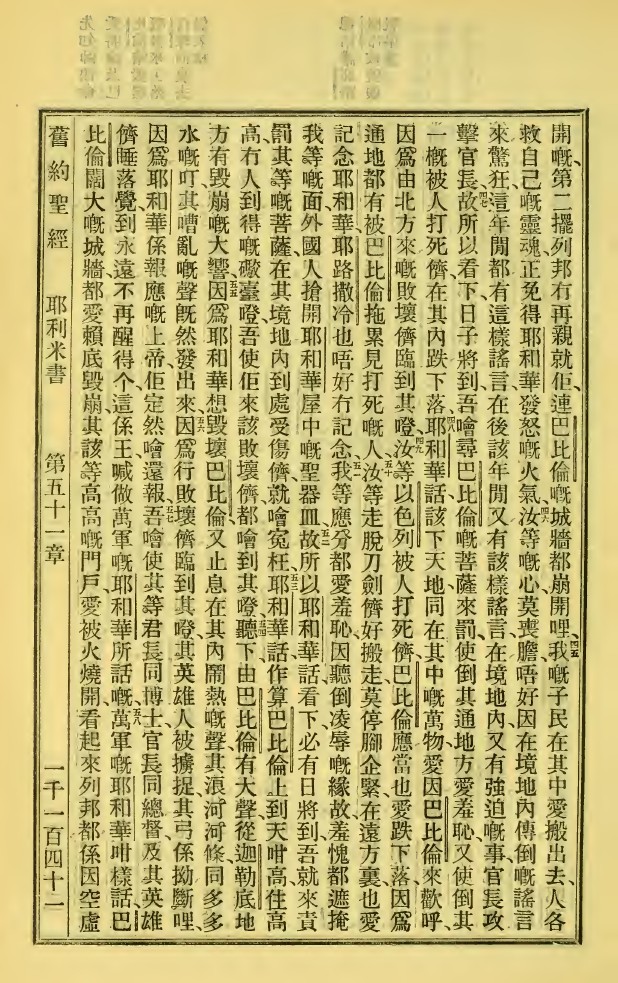 開嘅、第二擺列邦冇再親就佢、連巴比倫嘅城牆都崩開哩、四五我嘅子民在其中愛搬出去、人各
救自己嘅靈魂、正免得耶和華發怒嘅火氣、四六汝等嘅心莫喪膽、唔好因在境地內傳倒嘅謠言
來驚狂、這年閒都有這樣謠言、在後該年閒又有該樣謠言、在境地內又有強迫嘅事、官長攻
擊官長、四七故所以看下日子將到、吾噲尋巴比倫嘅菩薩來罰、使倒其通地方愛羞恥、又使倒其
一概被人打死儕在其內跌下落、四八耶和華話、該下天地同在其中嘅萬物、愛因巴比倫來歡呼、
因爲由北方來嘅敗壞儕臨到其噔、四九汝等以色列被人打死儕、巴比倫應當也愛跌下落、因爲
通地都有被巴比倫拖累見打死嘅人、五十汝等走脫刀劍儕、好搬走、莫停腳企緊、在遠方裏也愛
記念耶和華、耶路撒冷也唔好冇記念、五一我等應分都愛羞恥、因聽倒凌辱嘅緣故、羞愧都遮掩
我等嘅面、外國人搶開耶和華屋中嘅聖器皿、五二故所以耶和華話、看下必有日將到、吾就來責
罰其等嘅菩薩、在其境地內到處受傷儕就噲冤枉、五三耶和華話、作算巴比倫上到天咁高、往高
高冇人到得嘅礮臺噔、吾使佢來該敗壞儕、都噲到其噔、五四聽下、由巴比倫有大聲、從迦勒底地
方有毀崩嘅大響、五五因爲耶和華想毀壞巴比倫、又止息在其內鬧熱嘅聲、其浪河河條同多多
水嘅叮其嘈亂嘅聲旣然發出來、五六因爲行敗壞儕臨到其噔、其英雄人被擄捉、其弓係拗斷哩、
因爲耶和華係報應嘅上帝、佢定然噲還報、五七吾噲使其等君長同博士、官長同總督、及其英雄
儕睡落覺、到永遠不再醒得个、這係王喊做萬軍嘅耶和華所話嘅、五八萬軍嘅耶和華咁樣話、巴
比倫闊大嘅城牆、都愛賴底毀崩、其該等高高嘅門戶、愛被火燒開、看起來列邦都係因空虛
舊約聖經 耶利米書 第五十一章 一千一百四十二